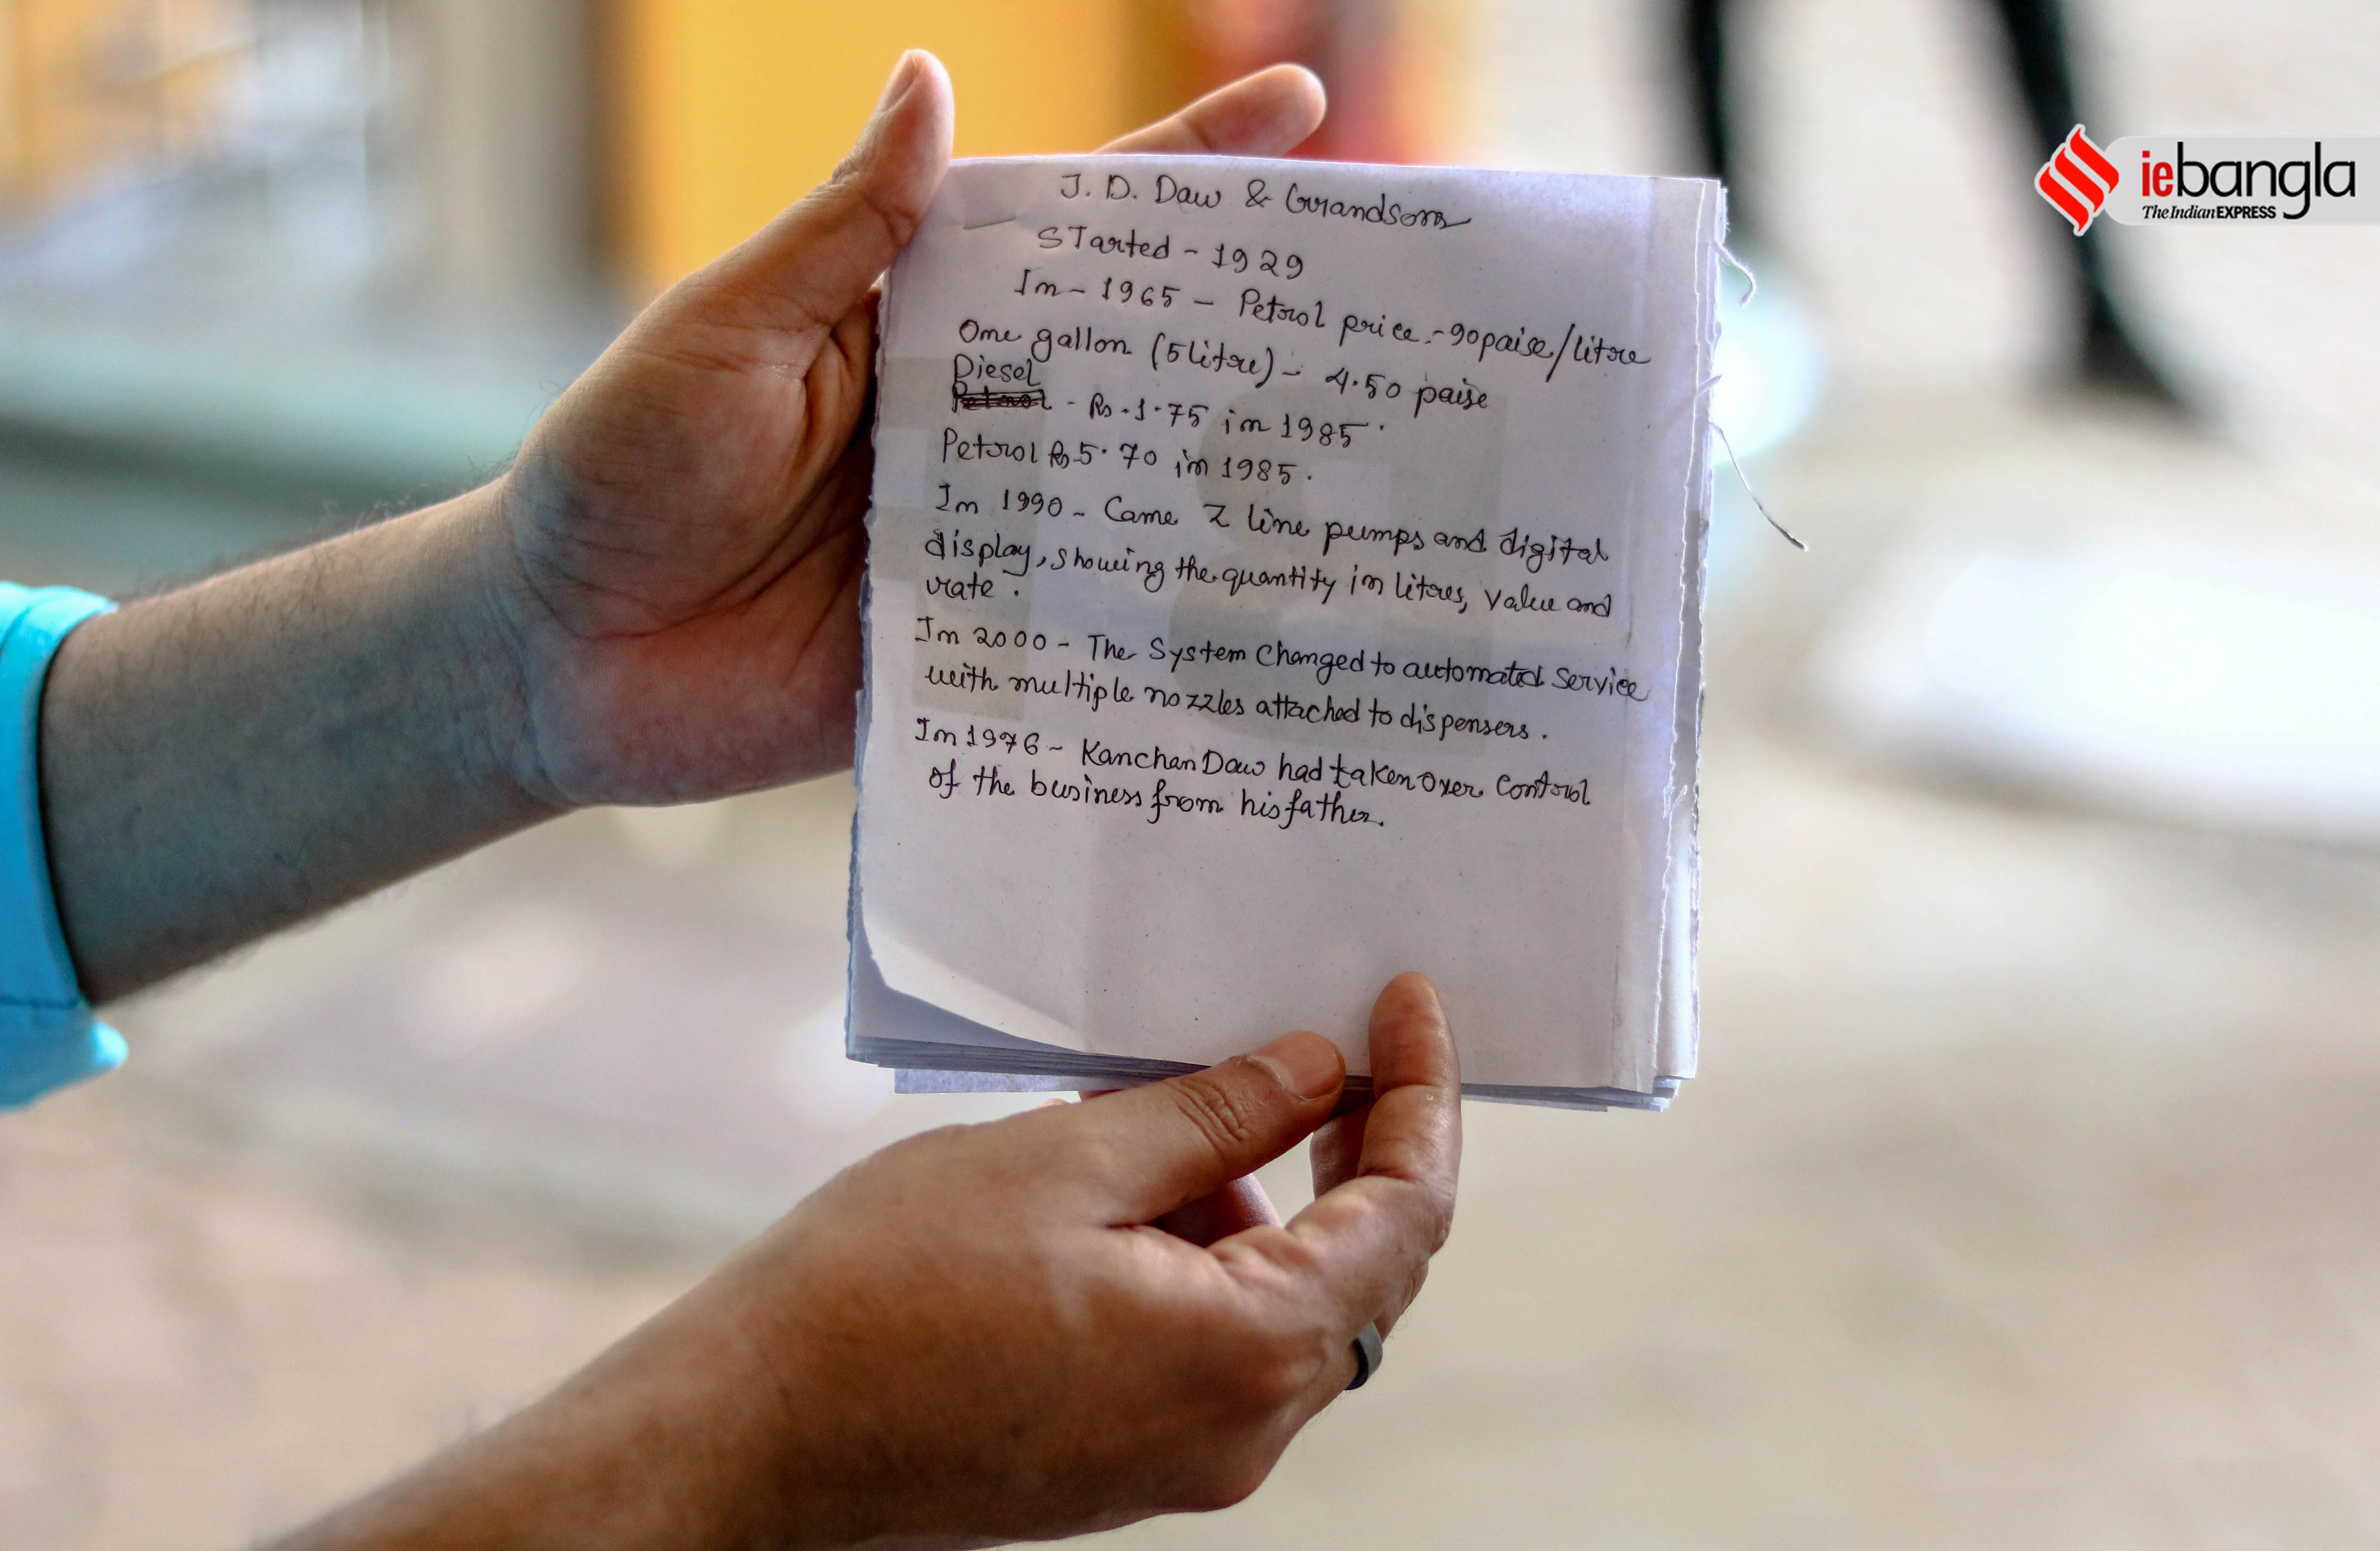 J. D. Daw & Grandsons
STarted - 1929
In - 1965 - Petrol price - 90 paise/litre
One gallon (5 litre) - 4.50 paise
Diesel
Petrol - Rs. 1.75 in 1985.
Petrol Rs 5.70 in 1985.
In 1990 - Came Z line pumps and digital
display, showing the quantity in litres, value and
rate.
In 2000 - The System Changed to automated Service
with multiple nozzles attached to dispensers.
In 1976 - Kanchan Daw had taken over Control
of the business from his father.
iebangla
The Indian EXPRESS